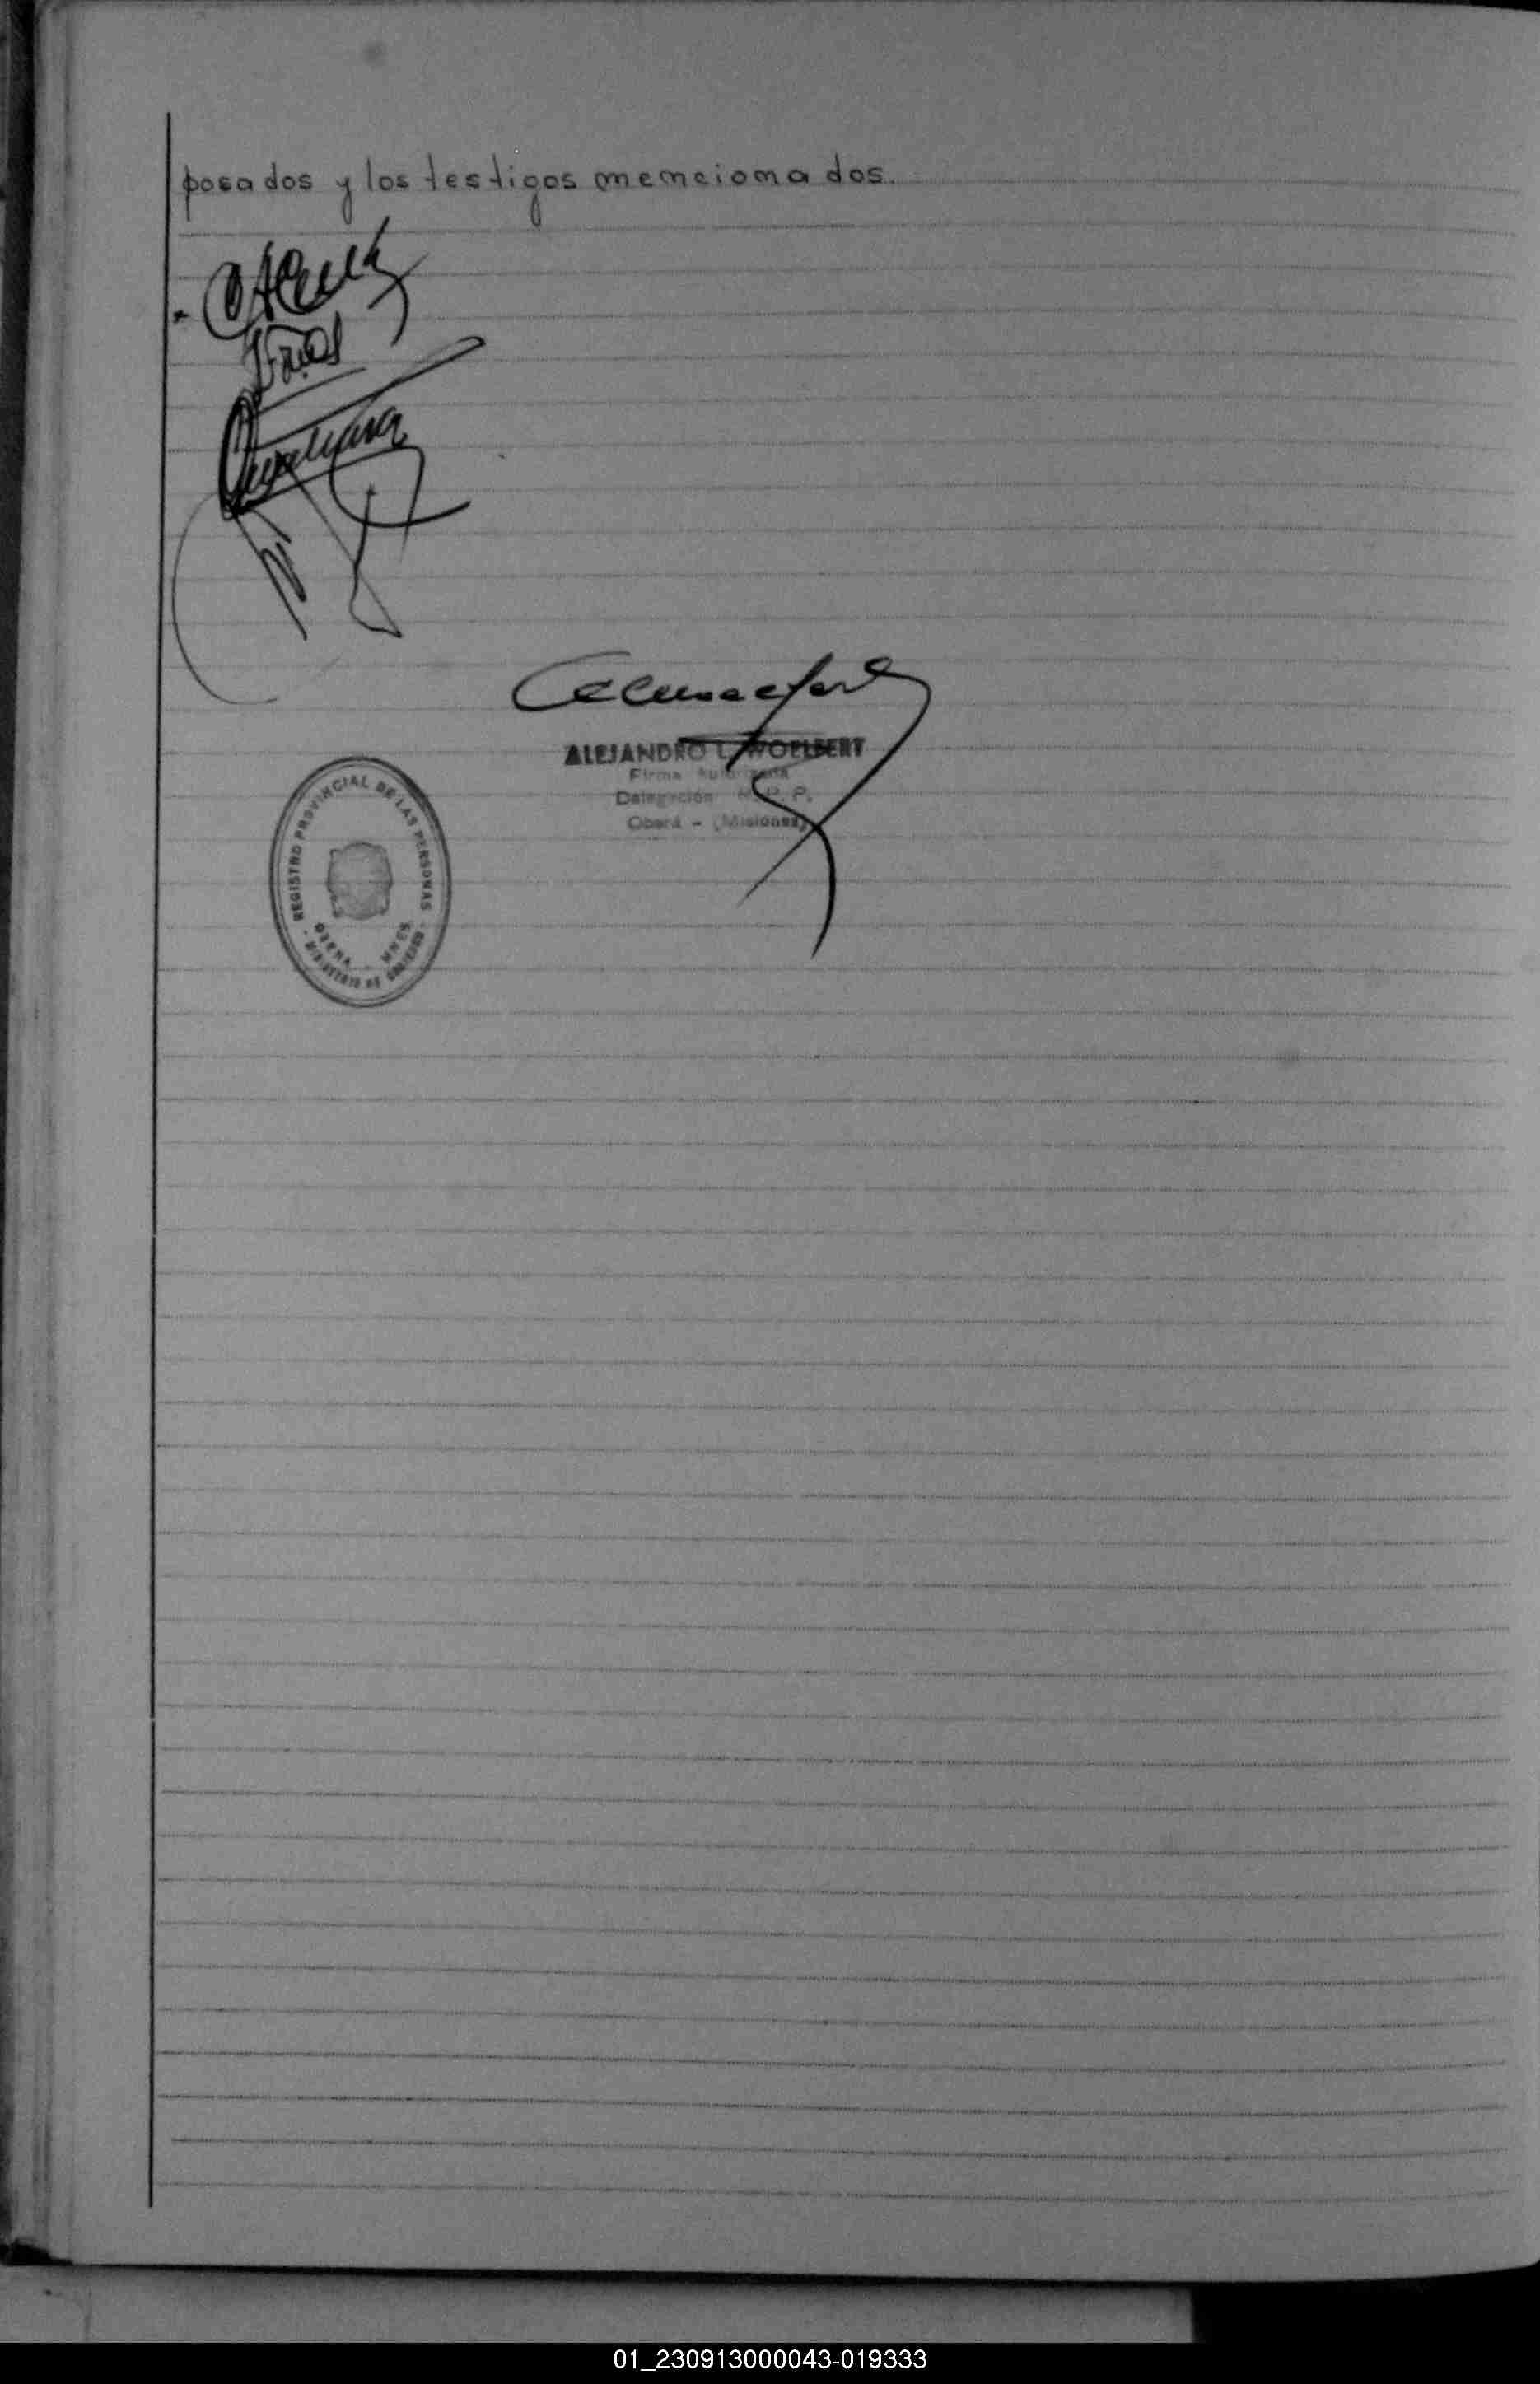 posados y los testigos mencionados.
ALEJANDRO L. WOELBERT
Firma Autorizada
Delegación R. P. P.
Oberá - (Misiones)
REGISTRO PROVINCIAL DE LAS PERSONAS
OBERA - MNES
MINISTERIO DE GOBIERNO
01_230913000043-019333